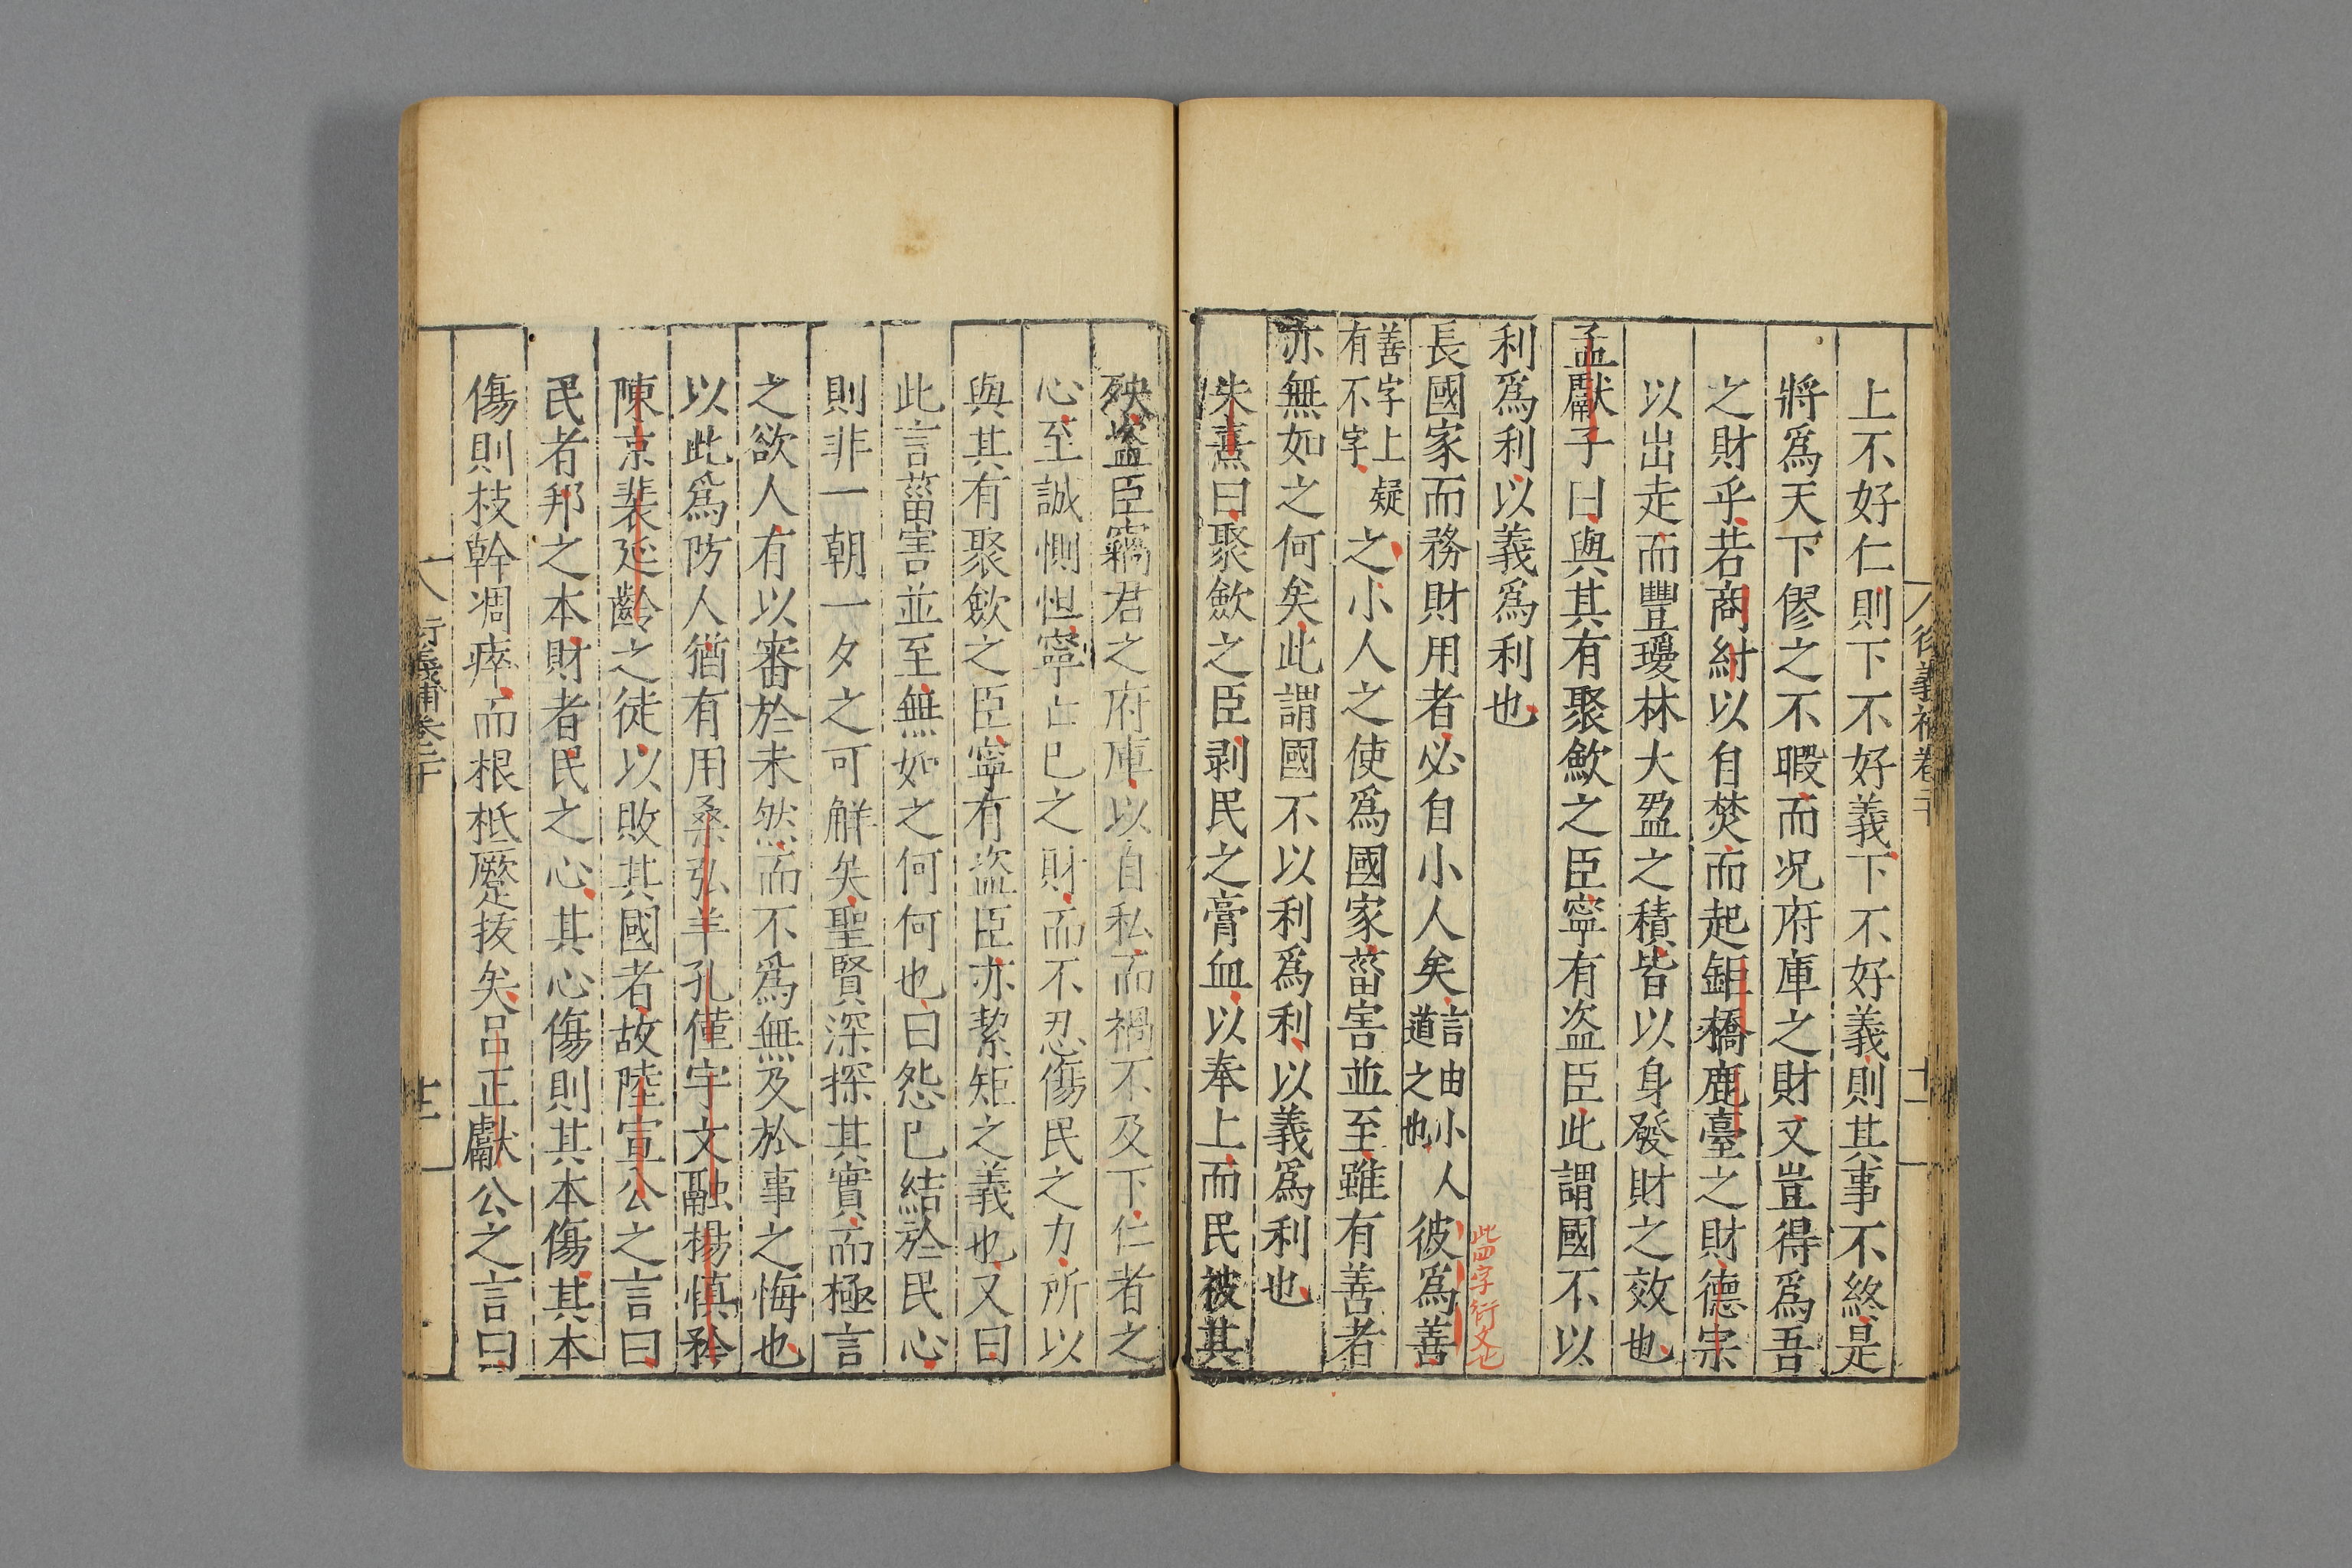 上不好仁則下不好義下不好義則其事不終是
將爲天下僇之不暇而況府庫之財又豈得爲吾
之財乎若商紂以自焚而起鉅橋鹿臺之財德宗
以出走而豐瓊林大盈之積皆以身發財之效也
孟獻子曰與其有聚斂之臣寧有盜臣此謂國不以
利爲利以義爲利也
長國家而務財用者必自小人矣言由小人道之也彼爲善
此四字衍文也
善字上疑有不字之小人之使爲國家菑害並至雖有善者
亦無如之何矣此謂國不以利爲利以義爲利也
朱熹曰聚斂之臣剥民之膏血以奉上而民被其
殃盜臣竊君之府庫以自私而禍不及下仁者之
心至誠惻怛寧亡已之財而不忍傷民之力所以
與其有聚斂之臣寧有盜臣亦絜矩之義也又曰
此言菑害並至無如之何何也曰怨已結於民心
則非一朝一夕之可解矣聖賢深探其實而極言
之欲人有以審於未然而不爲無及於事之悔也
以此爲防人猶有用桑弘羊孔僅宇文融楊慎矜
陳京裴延齡之徒以敗其國者故陸宣公之言曰
民者邦之本財者民之心其心傷則其本傷其本
傷則枝幹凋瘁而根柢蹷拔矣呂正獻公之言曰
衍義補卷二十